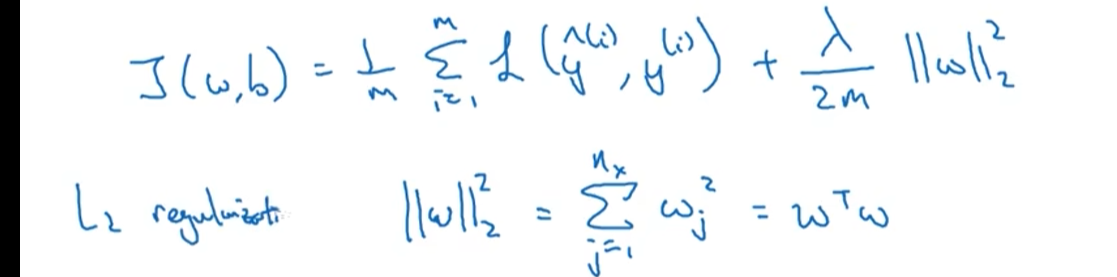 J(w,b) = 1/m ∑_{i=1}^{m} ℒ(ŷ^{(i)}, y^{(i)}) + λ/2m ||w||_2^2
L_2 regularizati ||w||_2^2 = ∑_{j=1}^{n_x} w_j^2 = w^T w